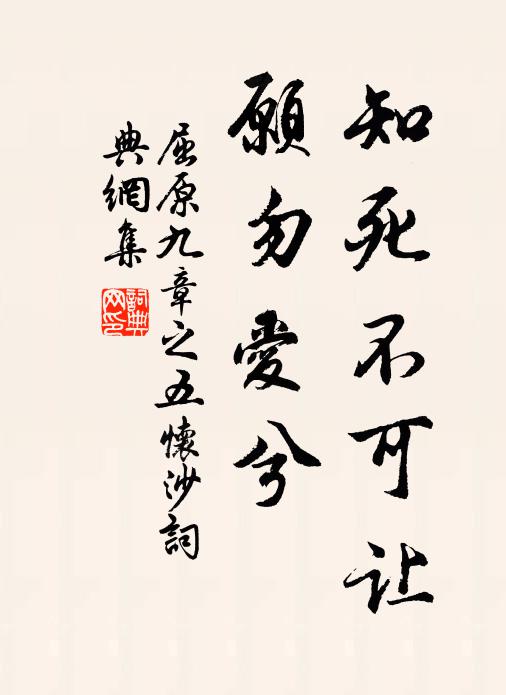 知死不可让
願勿愛兮
屈原九章之五懷沙詞
典網集
詞典
网印